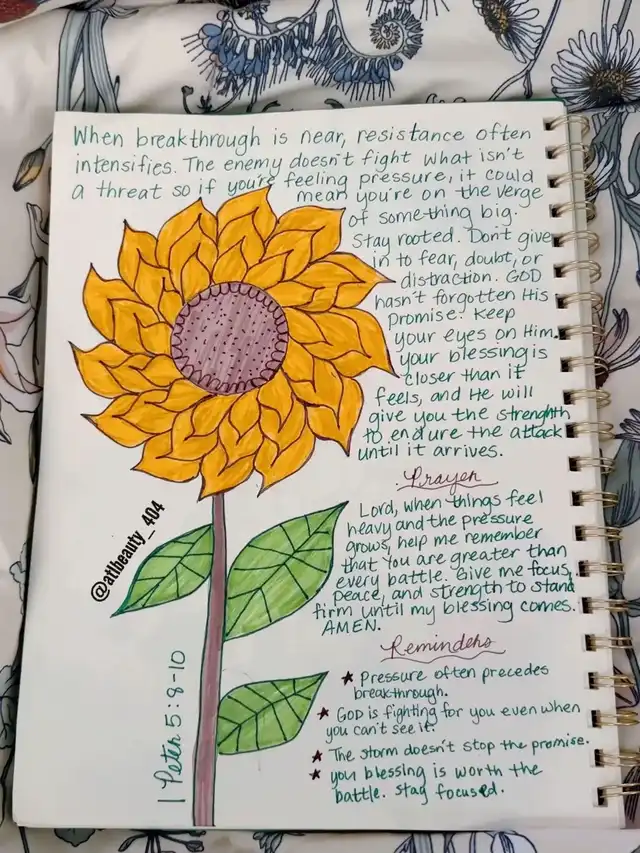 When breakthrough is near, resistance often
intensifies. The enemy doesn't fight what isn't
a threat so if you're feeling pressure, it could
mean you're on the verge
of something big.
Stay rooted. Don't give
in to fear, doubt, or
distraction. GOD
hasn't forgotten His
promise. Keep
your eyes on Him.
your blessing is
closer than it
feels, and He will
give you the strenghth
to endure the attack
until it arrives.
Prayer
Lord, when things feel
heavy and the pressure
grows, help me remember
that You are greater than
every battle. Give me focus,
peace, and strength to stand
firm until my blessing comes.
AMEN.
Reminders
★ Pressure often precedes
breakthrough.
★ GOD is fighting for you even when
you can't see it.
★ The storm doesn't stop the promise.
★ you blessing is worth the
battle. stay focused.
@atlbeauty_404
1 Peter 5:8-10